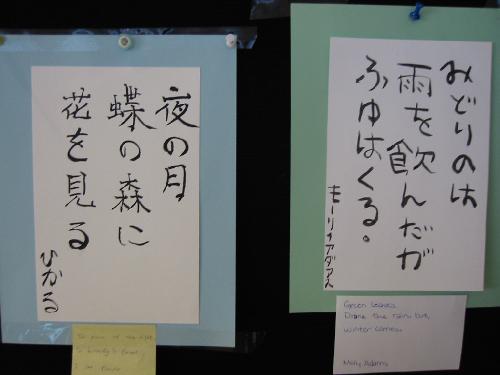 夜の月
蝶の森に
花を見る
ひかる
of the night
I see
みどりのは
雨を飲んだが
ふゆはくる。
Green leaves
Drank the rain but,
winter comes.
Molly Adams